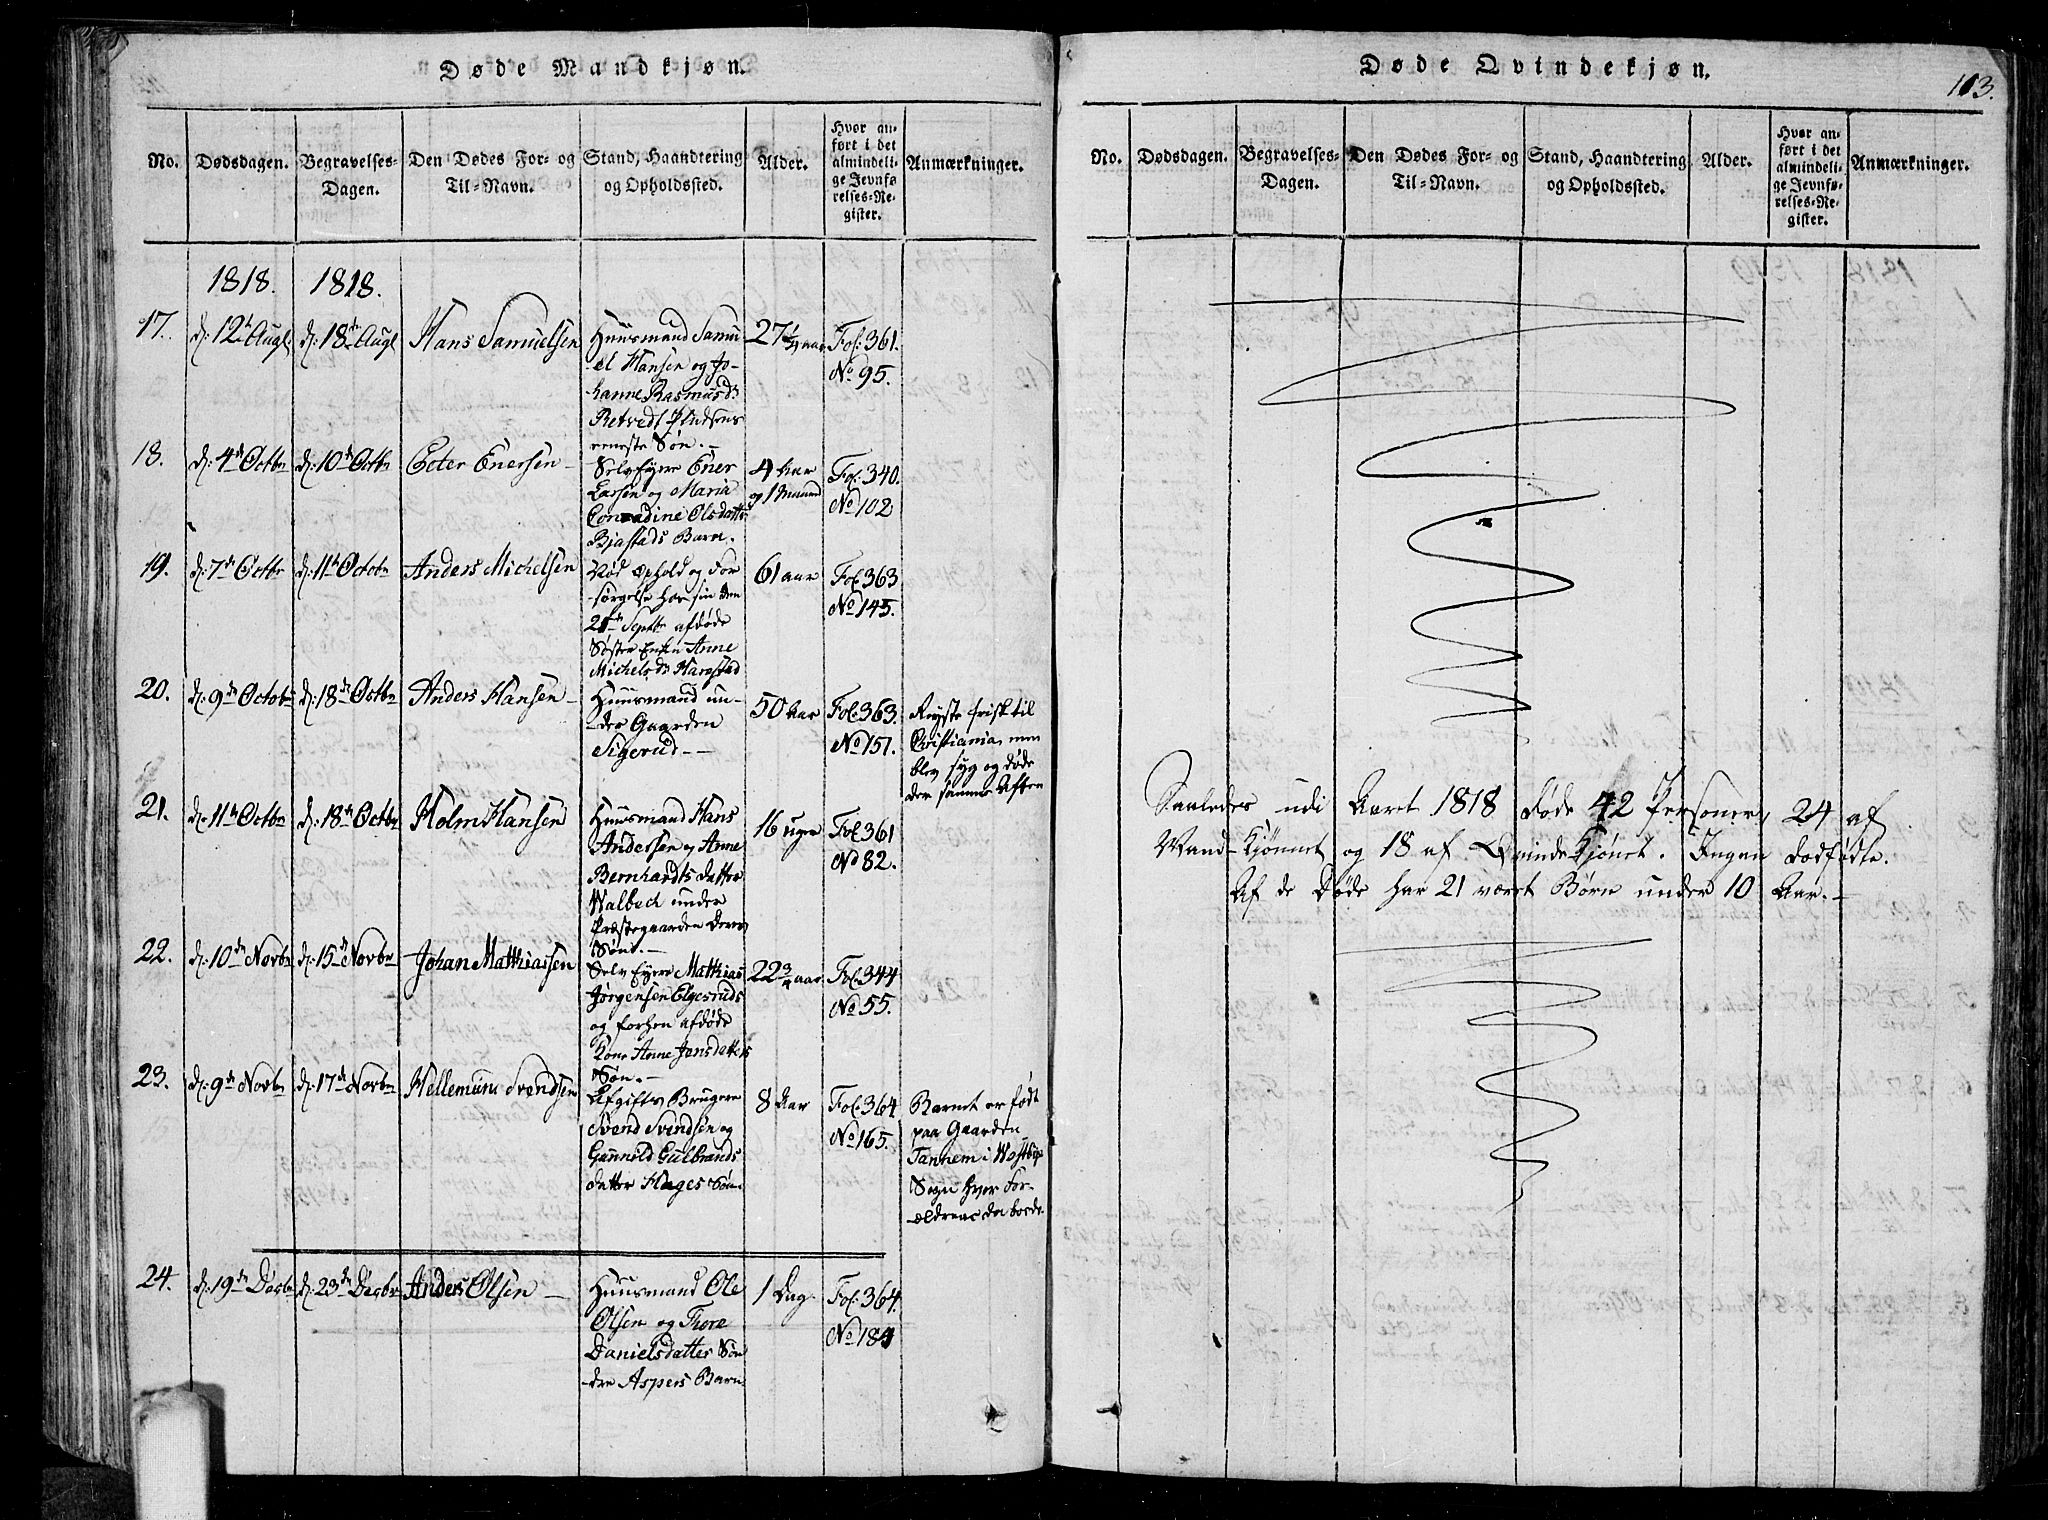 Døde Mandkjøn.
No.
Dødsdagen.
Begravelses-
Dagen.
Den Dødes For- og
Til-Navn.
Stand, Haandtering
og Opholdssted.
Alder.
Hvor an-
ført i det
almindeli-
ge Jevnfø
relses-Re-
gister.
Anmærkninger.
1818.
1818.
17.
d: 12t Augt
d: 18de Augt
Hans Samuelsen
Huusmand Samu-
el Hansen og Jo-
hanne Rasmusdr
Retvedt
eeneste Søn.-
27 1/2 aar
Fol: 361.
No 95.
18.
d: 4de Octbr
d: 10de Octbr
Peter Enersen
Selv Eyere Ener
Larsen og Maria
Conradine Olsdatter
Bjastads Barn.
4 Aar
og 1 Maaned
Fol: 340.
No 102
19.
d: 7de Octbr
d: 11te Octobr
Anders Michelsen
Nød Ophold og For
sørgelse hos sin den
21de Septbr afdøde
Søster Enke Anne
Michelsdr Harestad
61 aar
Fol: 363
No 145.
20.
d: 9de Octobr
d: 18de Octbr
Anders Hansen
Huusmand un-
der Gaarden
Sigerud
50 Aar
Fol: 363.
No 151.
Reyste frisk til
Christiania, men
blev syg og døde
der samme Aften
21.
d: 11te Octbr
d: 18de Octbr
Holm Hansen
Huusmand Hans
Andersen og Anne
Bernhardts datter
Walbech under
Præstegaarden deres
Søn.-
16 uger
Fol: 361
No 82.
22.
d: 10de Novbr
d: 15de Novbr
Johan Matthiassen
Selv Eyere Matthias
Jørgensen Elgesruds
og forhen afdøde
Kone Anne Jonsdatters
Søn.-
22 3/4 aar
Fol: 344
No 55.
23.
d: 9de Novbr
d: 17de Novbr
Hellemum Svendsen
Afgifts Brugere
Svend Svendsen og
Gunnild Gulbrands
datter Hages Søn
8 Aar
Fol: 364
No 165.
Barnet er født
paa Gaarden
Tannem i Westbye
Sogn hvor For-
ældrene da boede.
24.
d: 19de Decbr
d: 23de Decbr
Anders Olsen
Huusmand Ole
Olsen og Thore
Danielsdatter Søn
dre Aspers Barn.
1 Dag.
Fol: 364.
No 184
Døde Qvindekjøn.
113.
No.
Dødsdagen.
Begravelses-
Dagen.
Den Dødes For- og
Til-Navn.
Stand, Haandtering
og Opholdssted.
Alder.
Hvor an-
ført i det
almindeli-
ge Jevnfø-
relses-Re-
gister.
Anmærkninger.
Saaledes udi Aaret 1818 døde 42 Personer, 24 af
Mand-Kjønnet og 18 af Qvinde Kjønet. Ingen dødfødte.
Af de Døde har 21 været Børn under 10 Aar.-